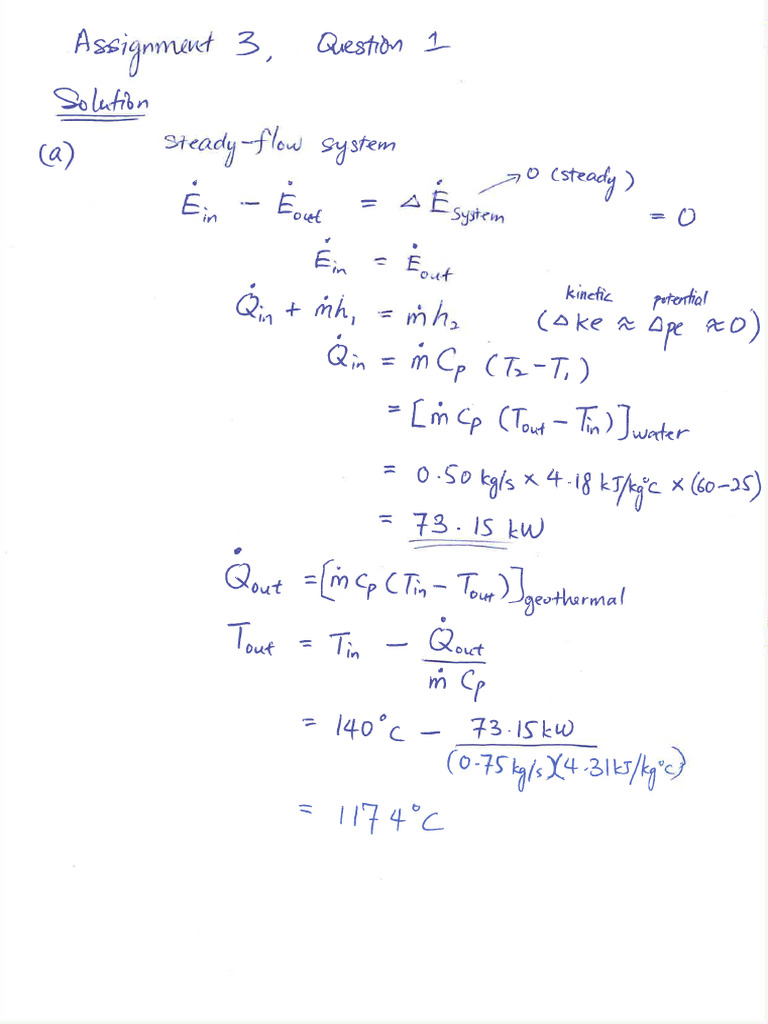 Assignment 3, Question 1
Solution
(a) steady-flow system
Ėin - Ėout = ΔĖsystem → 0 (steady) = 0
Ėin = Ėout
Q̇in + ṁh₁ = ṁh₂ (Δke ≈ Δpe ≈ 0) kinetic potential
Q̇in = ṁCp (T₂-T₁)
= [ṁCp (Tout - Tin)]water
= 0.50 kg/s × 4.18 kJ/kg°C × (60-25)
= 73.15 kW
Q̇out = [ṁCp (Tin - Tout)]geothermal
Tout = Tin - Q̇out / ṁ Cp
= 140°C - 73.15kW / (0.75kg/s)(4.31kJ/kg°C)
= 1174°C